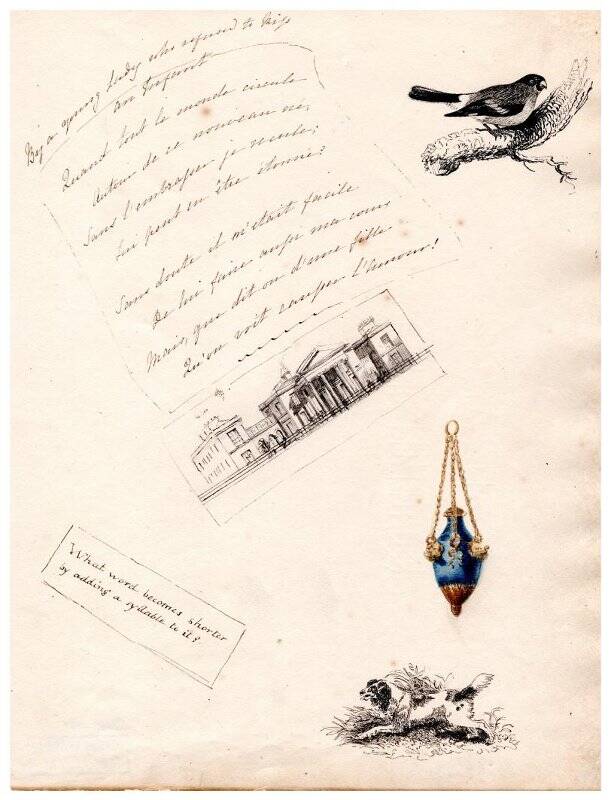 By a young Lady who refused to kiss
an Infant
Quand tout le monde circule
Autour de ce nouveau né,
Sans l'embrasser je recule;
Qui peut en être étonné?
Sans doute il m'était facile
De lui faire aussi ma cour
Mais, que dit on d'une fille
Qu'on voit caresser l'Amour!
What word becomes shorter
by adding a syllable to it?